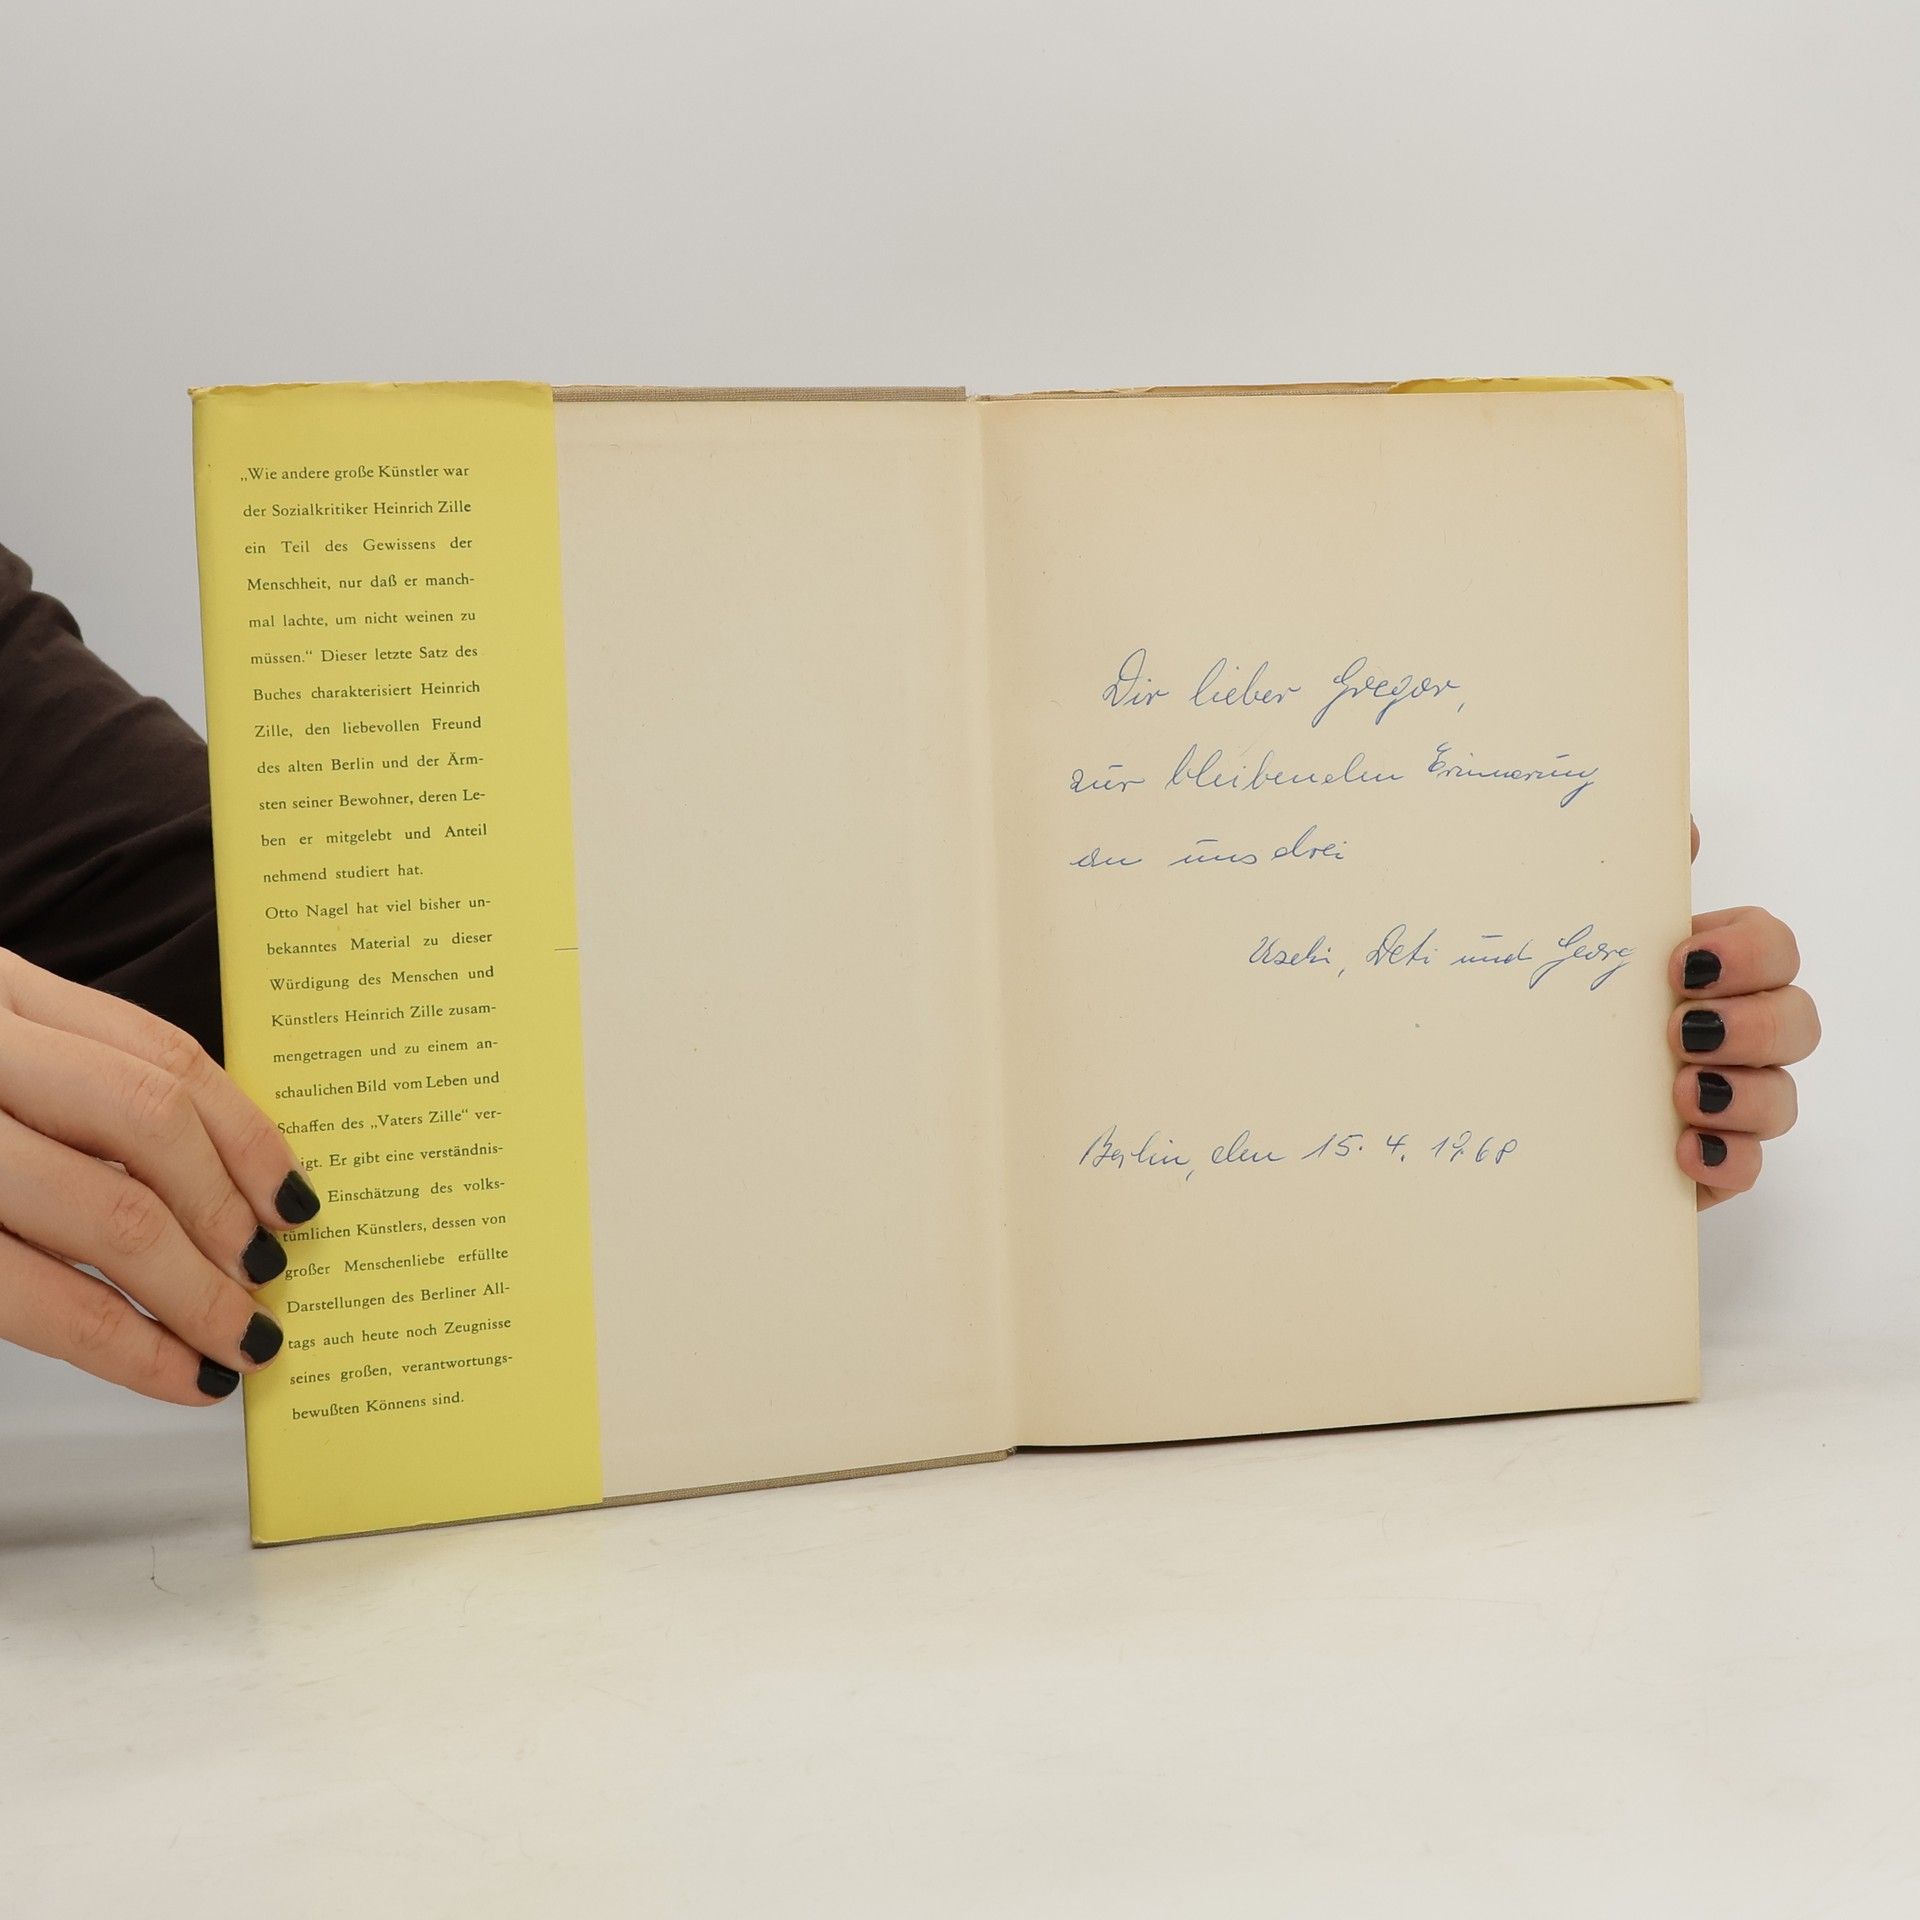 „Wie andere große Künstler war
der Sozialkritiker Heinrich Zille
ein Teil des Gewissens der
Menschheit, nur daß er manch-
mal lachte, um nicht weinen zu
müssen.“ Dieser letzte Satz des
Buches charakterisiert Heinrich
Zille, den liebevollen Freund
des alten Berlin und der Ärm-
sten seiner Bewohner, deren Le-
ben er mitgelebt und Anteil
nehmend studiert hat.
Otto Nagel hat viel bisher un-
bekanntes Material zu dieser
Würdigung des Menschen und
Künstlers Heinrich Zille zusam-
mengetragen und zu einem an-
schaulichen Bild vom Leben und
Schaffen des „Vaters Zille“ ver-
igt. Er gibt eine verständnis-
Einschätzung des volks-
tümlichen Künstlers, dessen von
großer Menschenliebe erfüllte
Darstellungen des Berliner All-
tags auch heute noch Zeugnisse
seines großen, verantwortungs-
bewußten Könnens sind.
Dir lieber Gregor,
zur bleibenden Erinnerung
an uns drei
Uschi, Deti und Georg
Berlin, den 15. 4. 1968